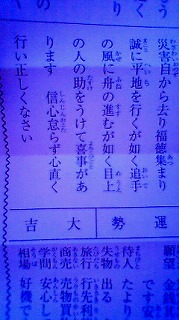 災害自から去り福徳集まり
誠に平地を行くが如く追手
の風に舟の進むが如く目上
の人の助をうけて喜事があ
ります 信心怠らず心直く
行い正しくなさい
運勢
大吉
願望
です安
待人 たより
失物 出る
旅行 行先利
商売 売物買
学問 安心し
相場 好機で